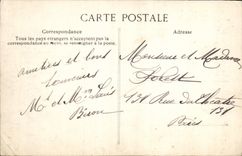 CARTE POSTALE
Correspondance
Tous les pays étrangers n'acceptent pas la
correspondance au recto, se renseigner à la poste.
Adresse
Amitiés et bons
souvenirs
Mr et Mme Louis
Monsieur et Madame
131 Rue du Théatre
131
Paris